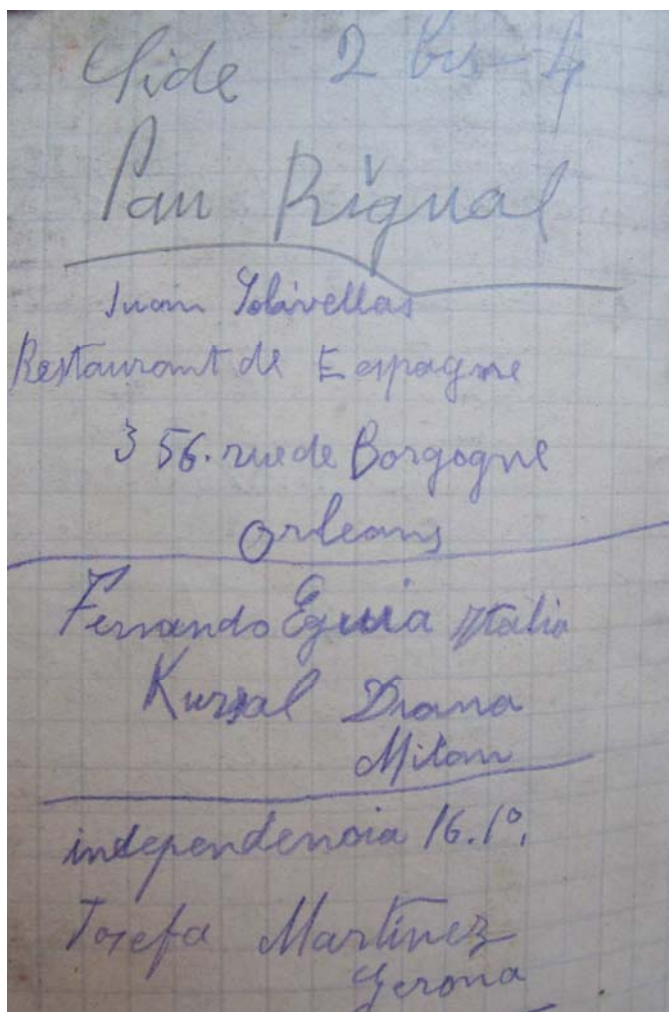 2 bis - 4
Pau Rigual
Juan
Restaurant de Espagne
356. rue de Borgogne
Orleans
Fernando Eguia Italia
Kursal Diana
Milan
independencia 16.1º,
Josefa Martinez
Gerona